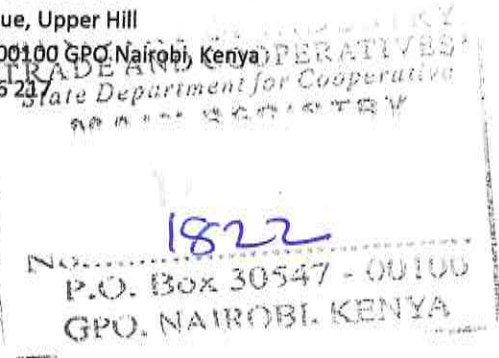 ue, Upper Hill
00100 GPO Nairobi, Kenya
TRADE AND COOPERATIVES
State Department for Cooperative
REGISTRY
1822
No.
P.O. Box 30547 - 00100
GPO. NAIROBI. KENYA